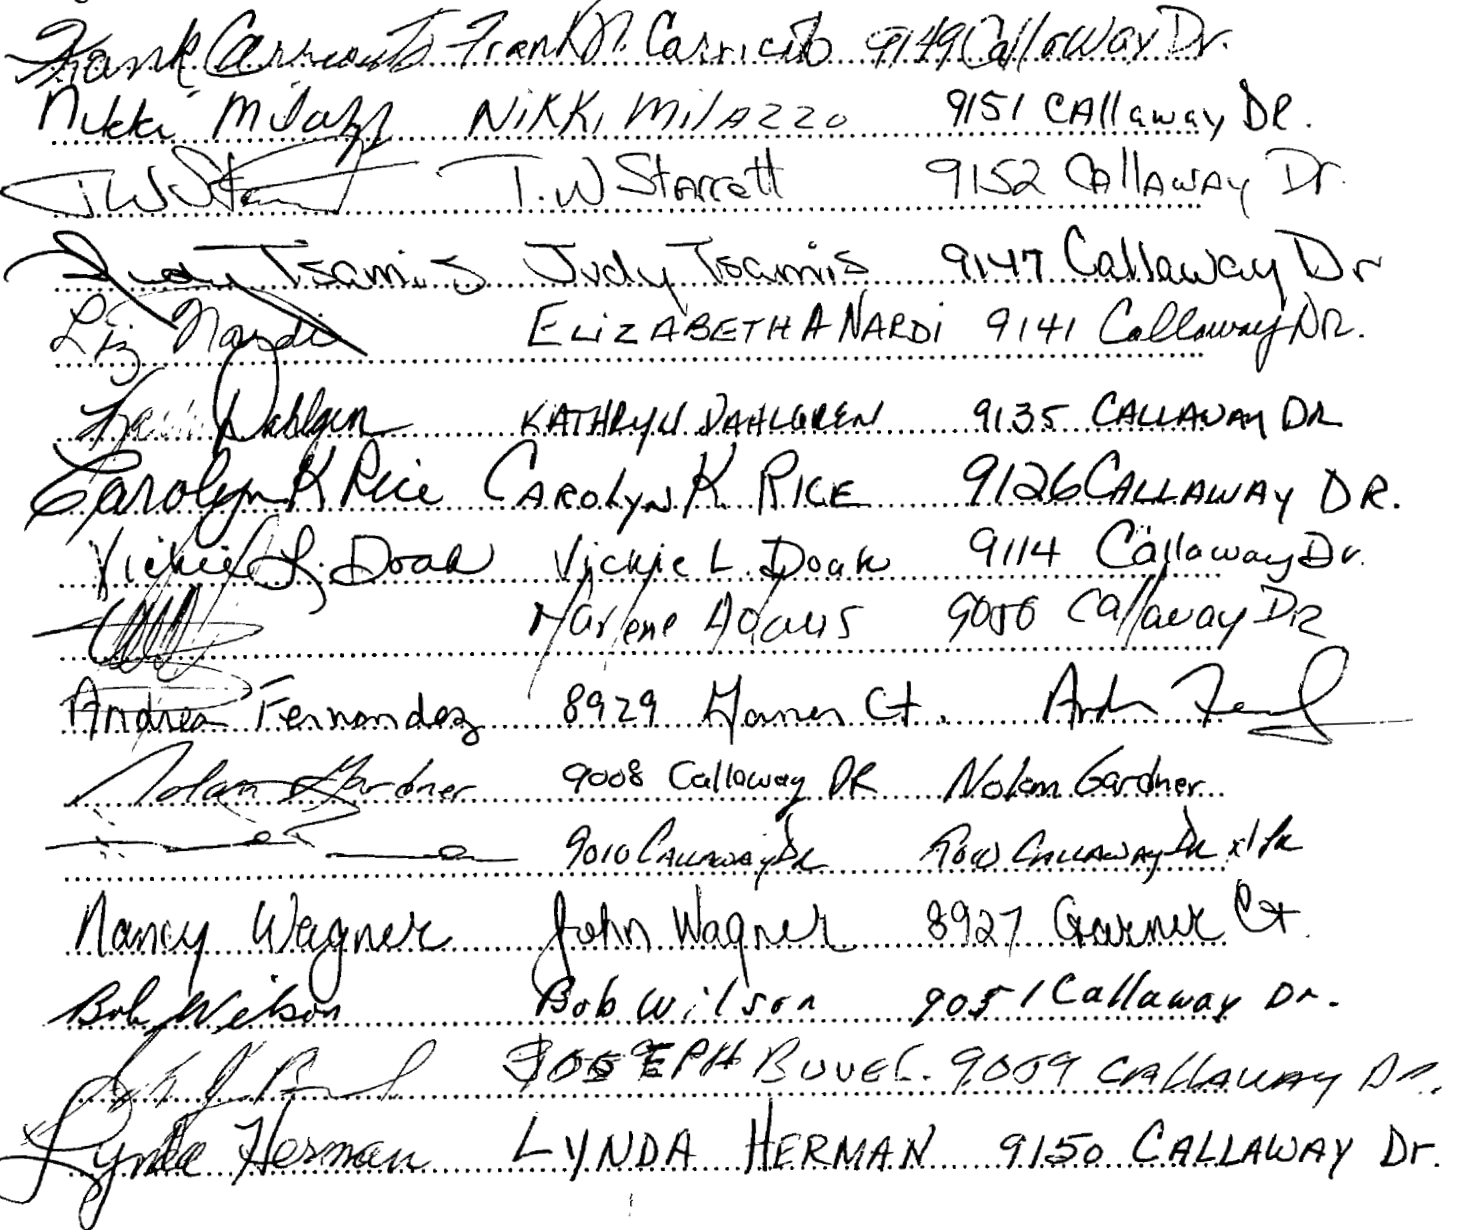 Frank Carricato Frank N. Carricato 9149 Callaway Dr.
Nikki Milazzo NiKKi Milazzo 9151 CAllaway DR.
TW Starrett T.W Starrett 9152 CAllAWAY Dr.
Judy Tsamis Judy Tsamis 9147 Callaway Dr
Liz Nardi ELiZABETH A NARDi 9141 Callaway DR.
Dahlgren KATHRYN DAHLGREN 9135 CALLAWAY DR
Carolyn K Rice CAROLYN K. RICE 9126 CALLAWAY DR.
Vickie L. Doak Vickie L. Doak 9114 Callaway Dr.
Marlene Adams Callaway DR
Andrea Fernandez 8929 Garner Ct.
Nolan Gardner 9008 Callaway DR Nolan Gardner
9010 CALLAWAY DR CALLAWAY DR
Nancy Wagner John Wagner 8927 Garner Ct.
Bob Wilson Bob Wilson 9051 Callaway Dr.
JOSEPH 9059 CALLAWAY DR.
Lynda Herman LYNDA HERMAN 9150 CALLAWAY Dr.